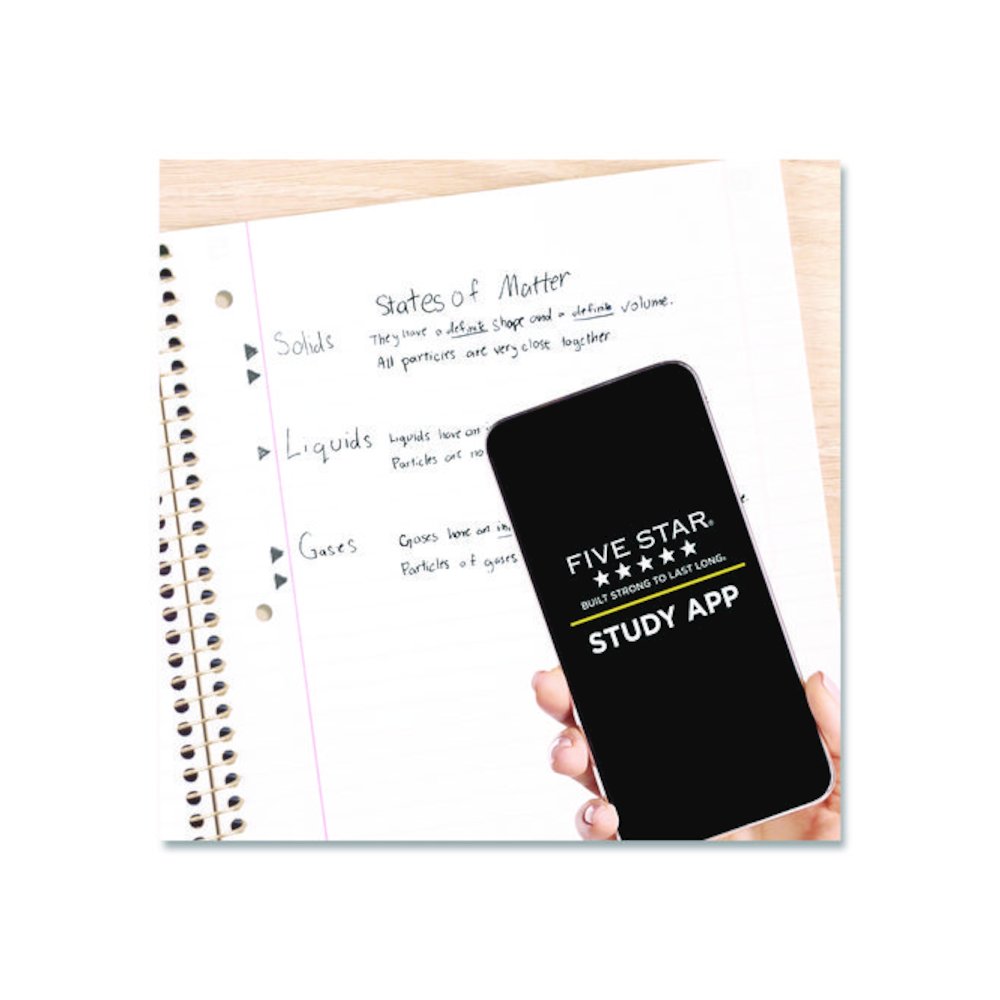 States of Matter
Solids They have a definite shape and a definite volume.
All particles are very close together
Liquids Liquids have an
Particles are no
Gases Gases have an in
Particles of gases
FIVE STAR®
BUILT STRONG TO LAST LONG.
STUDY APP